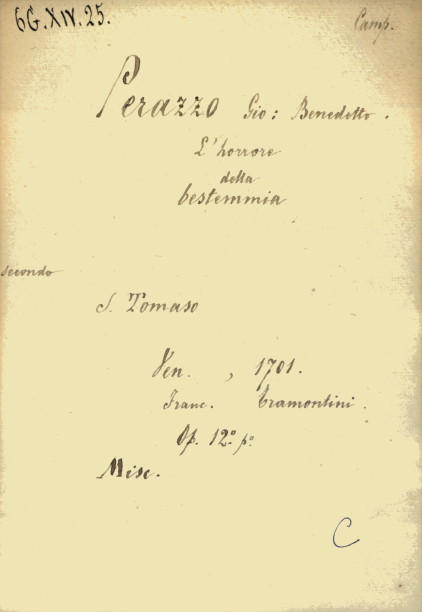 6G.XIV.25.
Camp.
Perazzo Gio: Benedetto.
L'horrore
della
bestemmia
secondo
S. Tomaso
Ven. , 1701.
Franc. Tramontini.
Op. 12º pº
Misc.
C